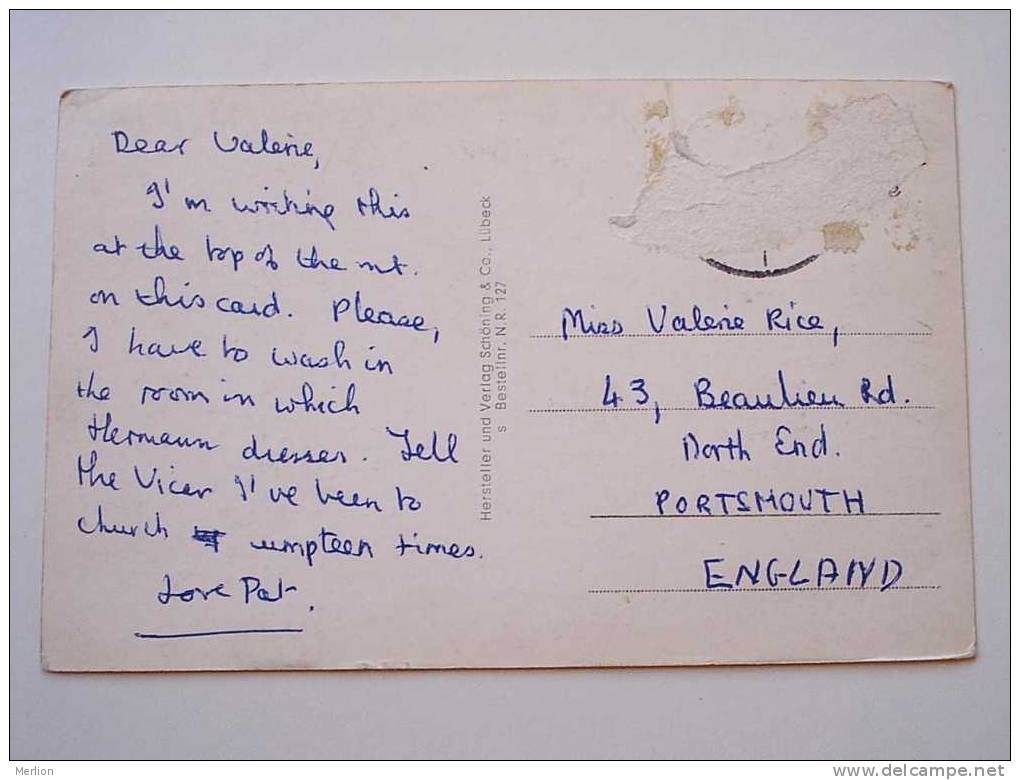 Dear Valerie,
I'm writing this
at the top of the mt.
on this card. Please,
I have to wash in
the room in which
Hermann dresses. Tell
the Vicar I've been to
church umpteen times.
Love Pat.
Hersteller und Verlag Schöning & Co., Lübeck
s Bestellnr. N.R. 127
Miss Valerie Rice,
43, Beaulieu Rd.
North End.
PORTSMOUTH
ENGLAND
Merlion
www.delcampe.net